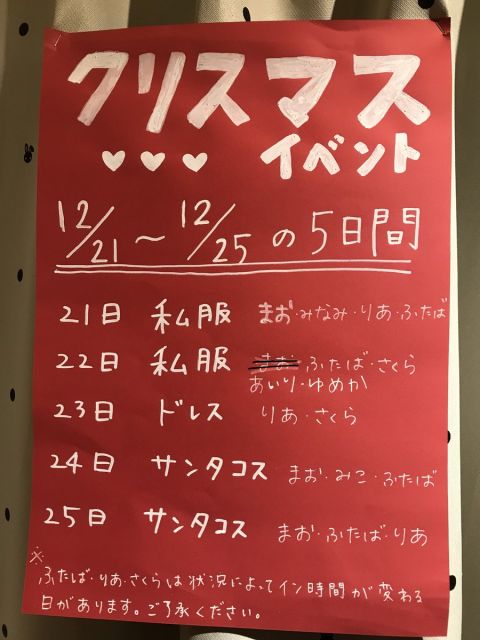 クリスマス
♡♡♡ イベント
12/21～12/25の5日間
21日 私服 まお・みなみ・りあ・ふたば
22日 私服 まお・ふたば・さくら
あいり・ゆめか
23日 ドレス りあ・さくら
24日 サンタコス まお・みこ・ふたば
25日 サンタコス まお・ふたば・りあ
※
ふたば・りあ・さくらは状況によってイン時間が変わる
日があります。ご了承ください。